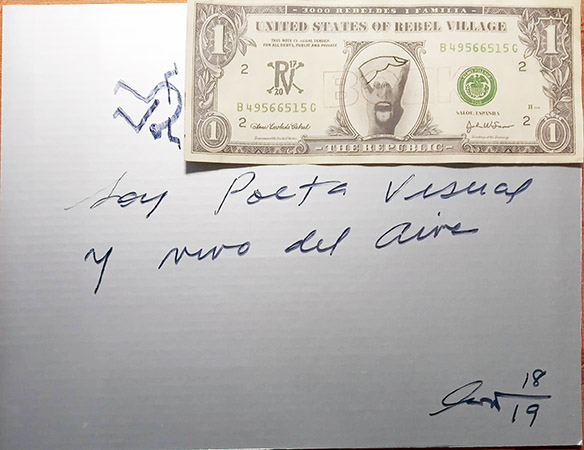 3000 REBELDES 1 FAMILIA
UNITED STATES OF REBEL VILLAGE
THIS NOTE IS LEGAL TENDER
FOR ALL DEBTS, PUBLIC AND PRIVATE
B 49566515 G
2
2
17
RV
20
B 49566515 G
2
2
SALOU, ESPANHA
1
1
1
1
THE REPUBLIC
Soy Poeta Visual
y vivo del aire
18
19